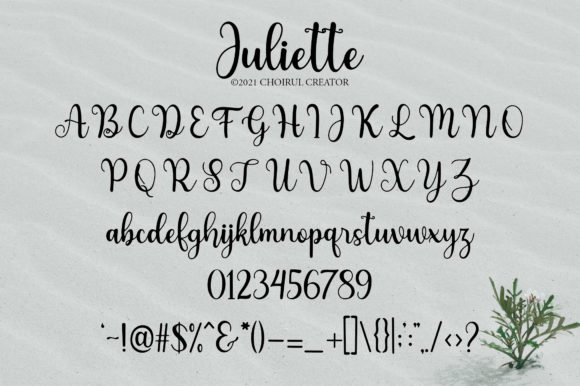 Juliette
©2021 CHOIRUL CREATOR
ABCDEFGHIJKLMNO
PQRSTUVWXYZ
abcdefghijklmnopqrstuvwxyz
0123456789
`~!@#$%^&*()-=_+[]\{}|:;"',./‹›?